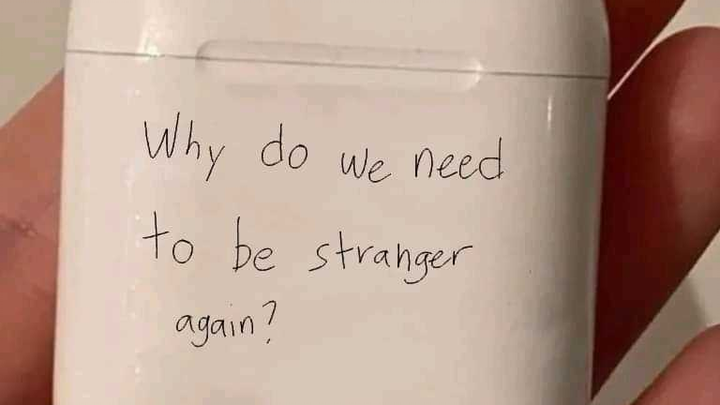 Why do we need
to be stranger
again?